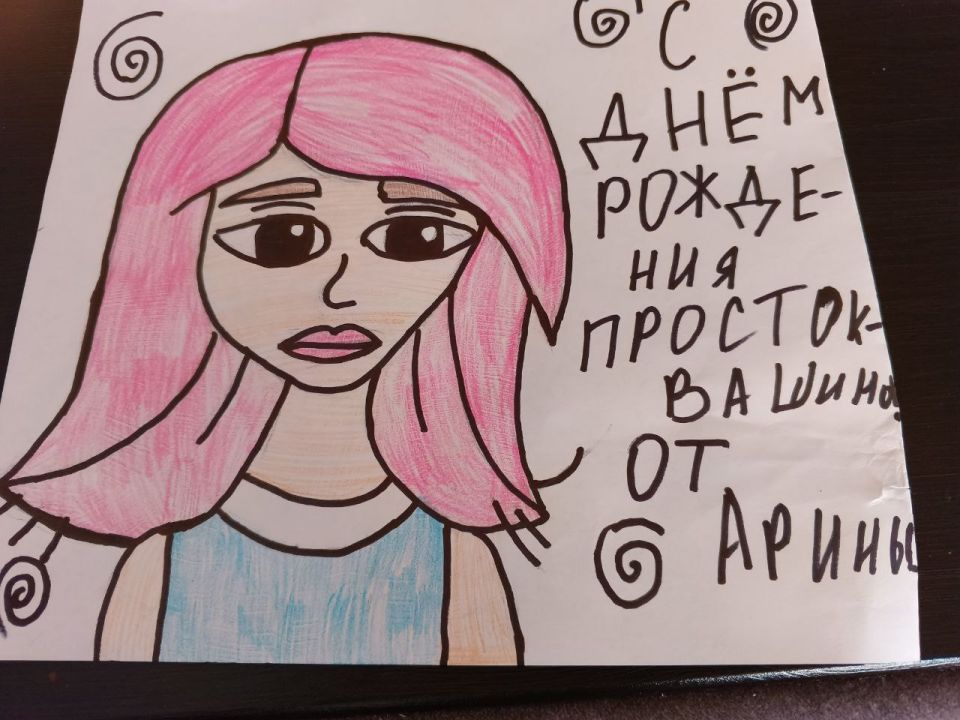 С
ДНЁМ
РОЖДЕ-
НИЯ
ПРОСТОК-
ВАШИНО!
ОТ
АРИНЫ